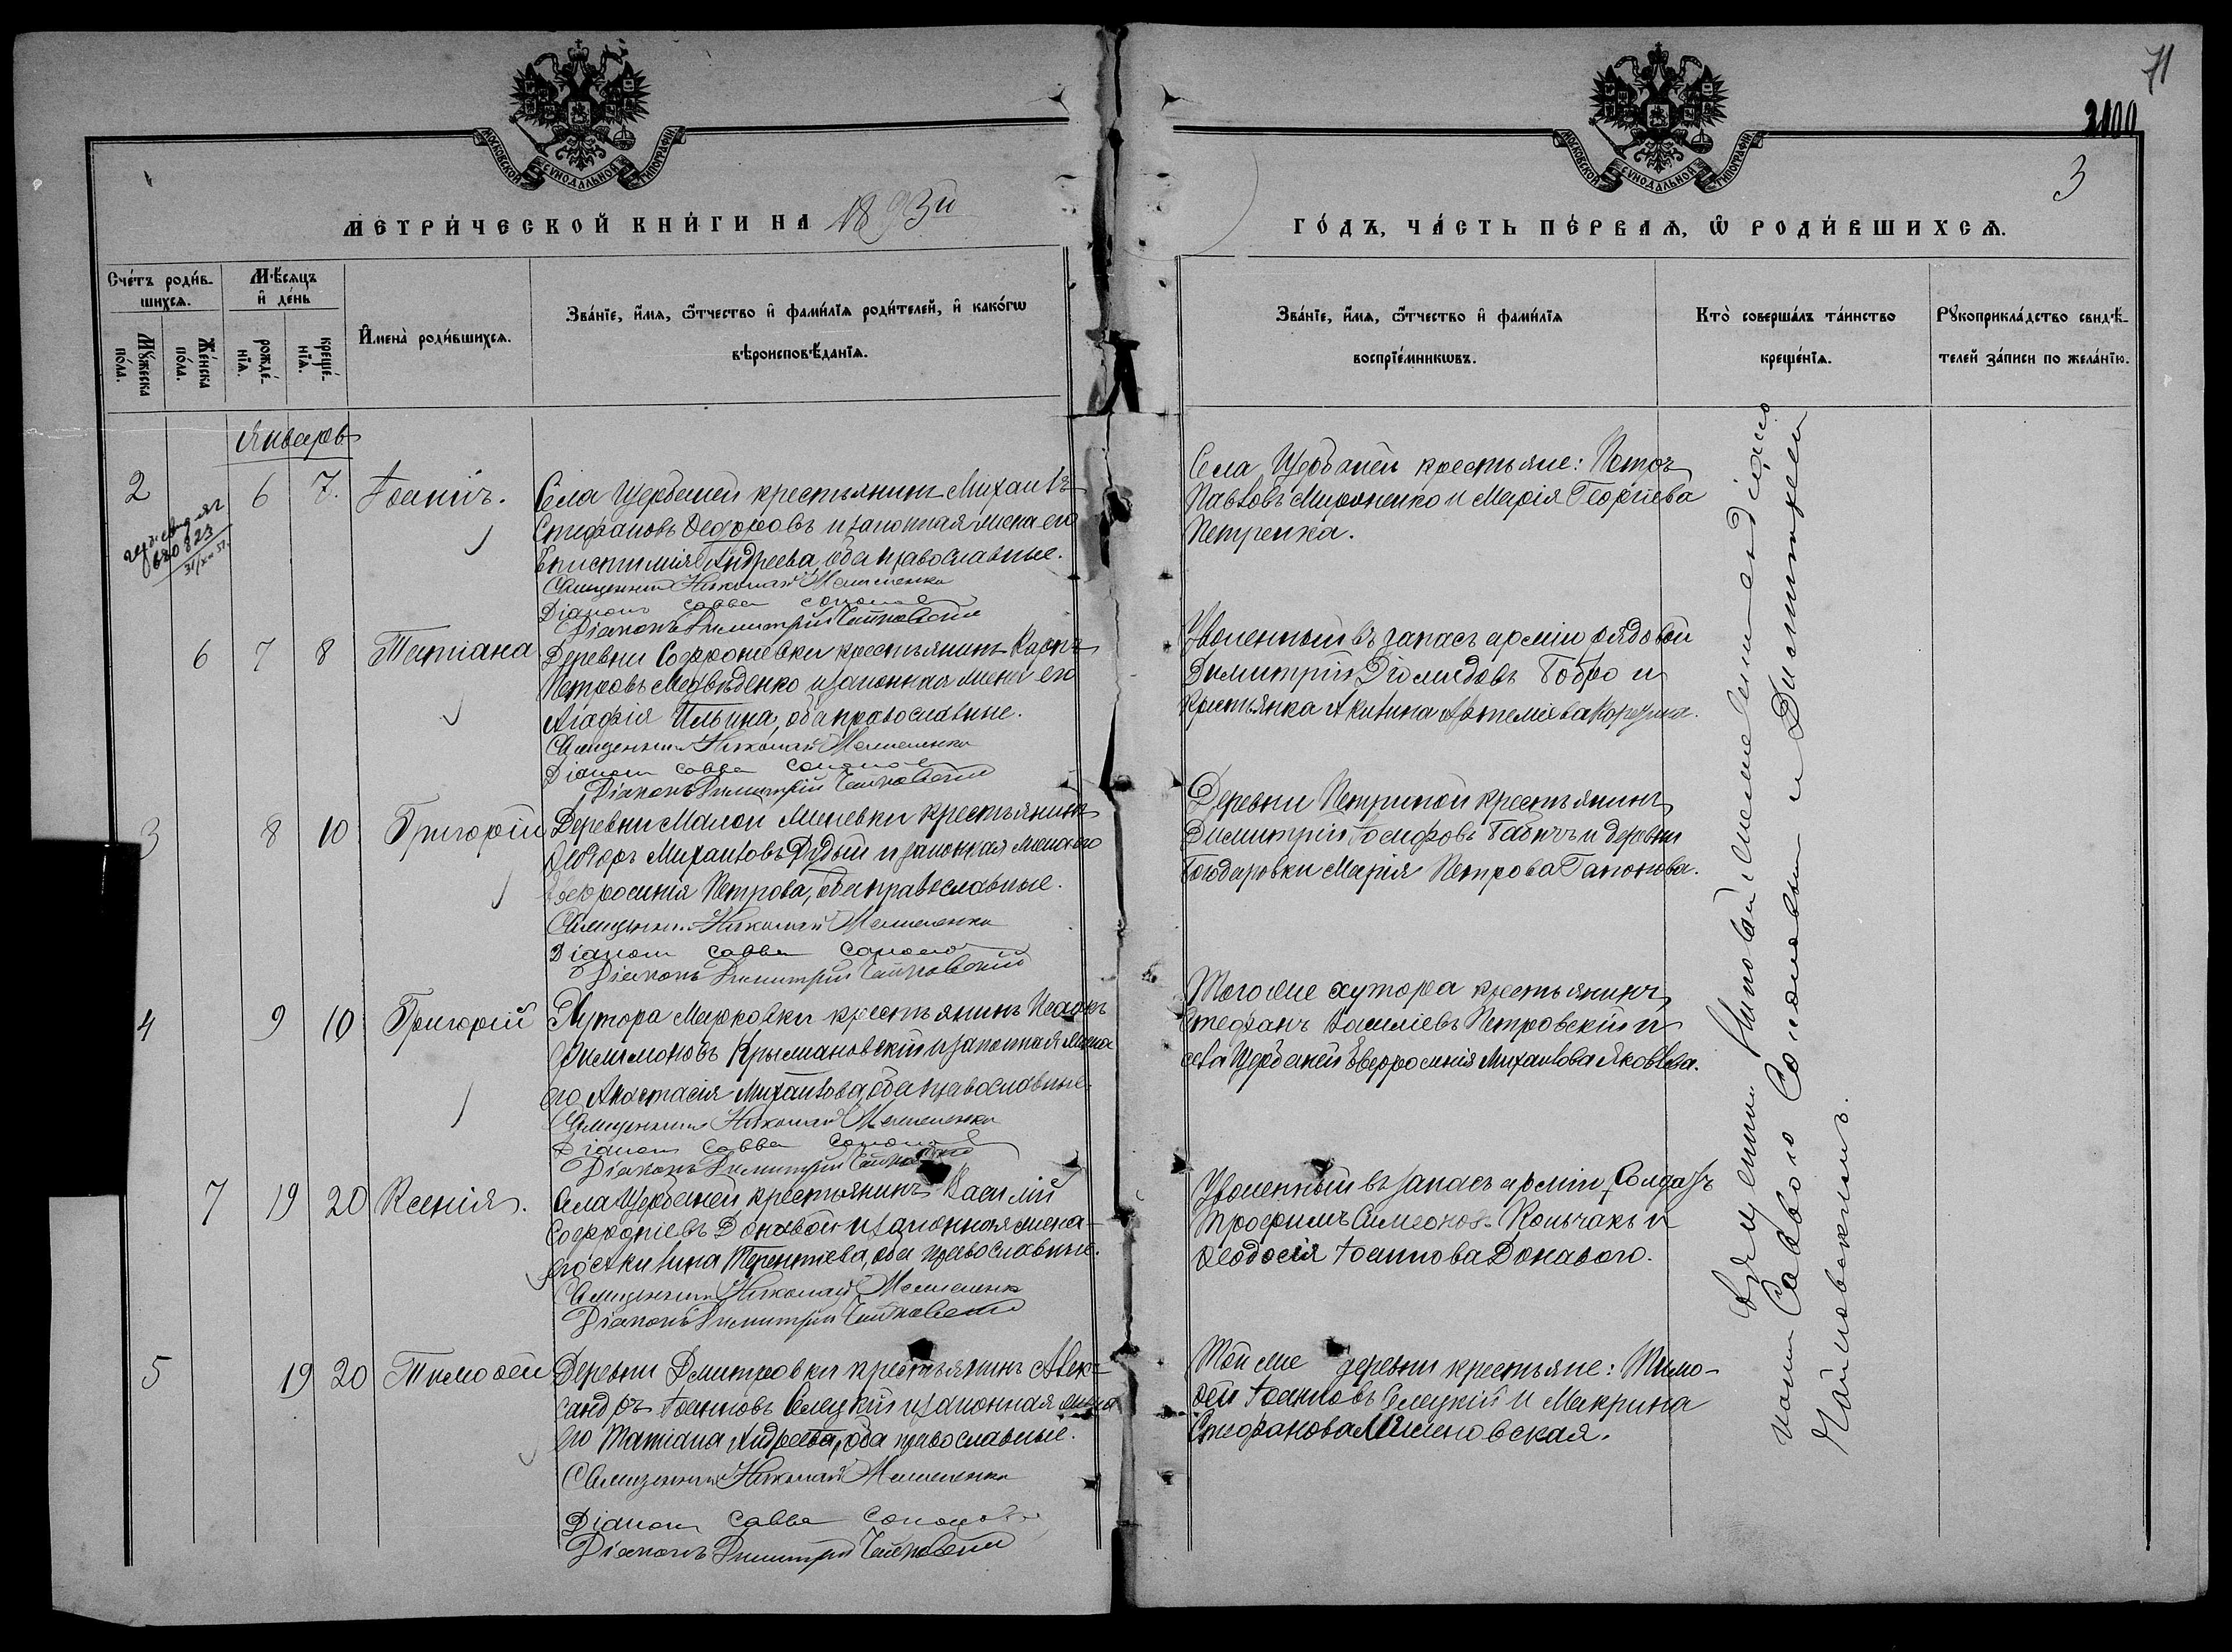 71
2100
3
МОСКОВСКОЙ СѴНОДАЛЬНОЙ ТИПОГРАФІИ
МОСКОВСКОЙ СѴНОДАЛЬНОЙ ТИПОГРАФІИ
МЕТРИ́ЧЕСКОЙ КНИ́ГИ НА 1893й
ГО́ДЪ, ЧА́СТЬ ПЕ́РВАѦ, Ѿ РОДИ́ВШИХСѦ.
Сче́тъ роди́в-
шихсѧ.
Мꙋ́жеска
по́ла.
Же́нска
по́ла.
Мѣ́сѧцъ
и҆ де́нь
рожде́-
нїѧ.
креще́-
нїѧ.
И҆мена̀ роди́вшихсѧ.
Зва́нїе, и҆́мѧ, ѻ҆́тчество и҆ фами́лїѧ роди́телей, и҆ како́гѡ
вѣроисповѣ́данїѧ.
Зва́нїе, и҆́мѧ, ѻ҆́тчество и҆ фами́лїѧ
воспрїе́мникѡвъ.
Кто̀ соверша́лъ та́инство
креще́нїѧ.
Рꙋкоприкла́дство свидѣ́-
телей за́писи по жела́нїю.
Январь
2 6 7. Іоаннъ.
680823
Села Щербаней крестьянинъ Михаилъ
Стефановъ Федоровъ и законная жена его
Епистимія Андреева, оба православные.
Священникъ Николай
Діаконъ Савва
Діаконъ Димитрій Чайковскій
Села Щербаней крестьяне: Петръ
Павловъ Мироненко и Марія Георгіева
Петренка.
6 7 8 Татіана
Деревни Софроніевки крестьянинъ Карпъ
Петровъ Медвѣденко и законная жена его
Агафія Ильина, оба православные.
Священникъ Николай
Діаконъ Савва
Діаконъ Димитрій Чайковскій
Уволенный въ запасъ арміи рядовой
Димитрій Діомидовъ Бобро и
крестьянка Акилина Артеміева
3 8 10 Григорій
Деревни Малой Мечевки крестьянинъ
Ѳеодоръ Михаиловъ Рудый и законная жена его
Евфросинія Петрова, оба православные.
Священникъ Николай
Діаконъ Савва
Діаконъ Димитрій Чайковскій
Деревни Петриной крестьянинъ
Димитрій Іосифовъ Бабичъ и деревни
Бондаровки Марія Петрова Гапонова.
4 9 10 Григорій
Хутора Марковки крестьянинъ Исаакъ
Филимоновъ Крыжановскій и законная жена
его Анастасія Михаилова, оба православные.
Священникъ Николай
Діаконъ Савва
Діаконъ Димитрій Чайковскій
Того же хутора крестьянинъ
Стефанъ Василіевъ Петровскій и
села Щербаней Евфросинія Михаилова Яковлева.
7 19 20 Ксенія.
Села Щербаней крестьянинъ Василій
Софроніевъ Донавой и законная жена
его Акилина Терентіева, оба православные.
Священникъ Николай
Діаконъ Димитрій Чайковскій
Уволенный въ запасъ арміи солдатъ
Трофимъ Симеоновъ Кольчакъ и
Ѳеодосія Іоаннова Донавого.
5 19 20 Тимоѳей
Деревни Дмитровки крестьянинъ Алек-
сандръ Іоанновъ Селецкій и законная жена
его Татіана Андреева, оба православные.
Священникъ Николай
Діаконъ Савва
Діаконъ Димитрій Чайковскій
Той же деревни крестьяне: Тимо-
ѳей Іоанновъ Селецкій и Макрина
Стефанова
Священникъ Николай съ діако-
нами Саввою и Димитріемъ
Чайковскимъ.